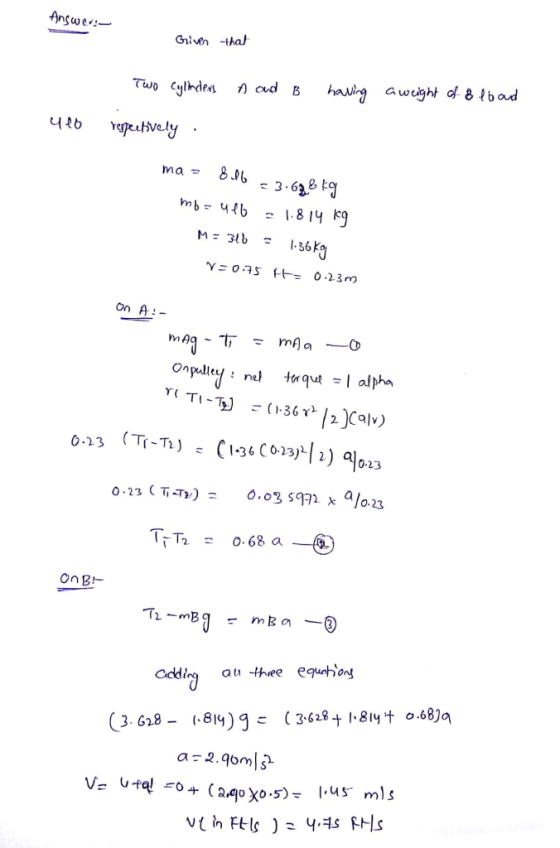 Answer:-
Given that
Two cylinders A and B having a weight of 8 lb and
4 lb respectively .
ma = 8 lb = 3.628 kg
mb = 4 lb = 1.814 kg
M = 3 lb = 1.36 kg
r = 0.75 ft = 0.23m
On A :-
mAg - T1 = mAa — ①
On pulley : net torque = I alpha
r( T1 - T2) = (1.36 r²/2)(a/r)
0.23 (T1-T2) = (1.36 (0.23)²/2) a/0.23
0.23 (T1-T2) = 0.035972 x a/0.23
T1-T2 = 0.68 a — ②
On B:-
T2 - mBg = mBa — ③
adding all three equations
(3.628 - 1.814) g = (3.628 + 1.814 + 0.68)a
a = 2.90m/s²
V = u+at = 0 + (2.90 x 0.5) = 1.45 m/s
V( in Ft/s ) = 4.75 Ft/s